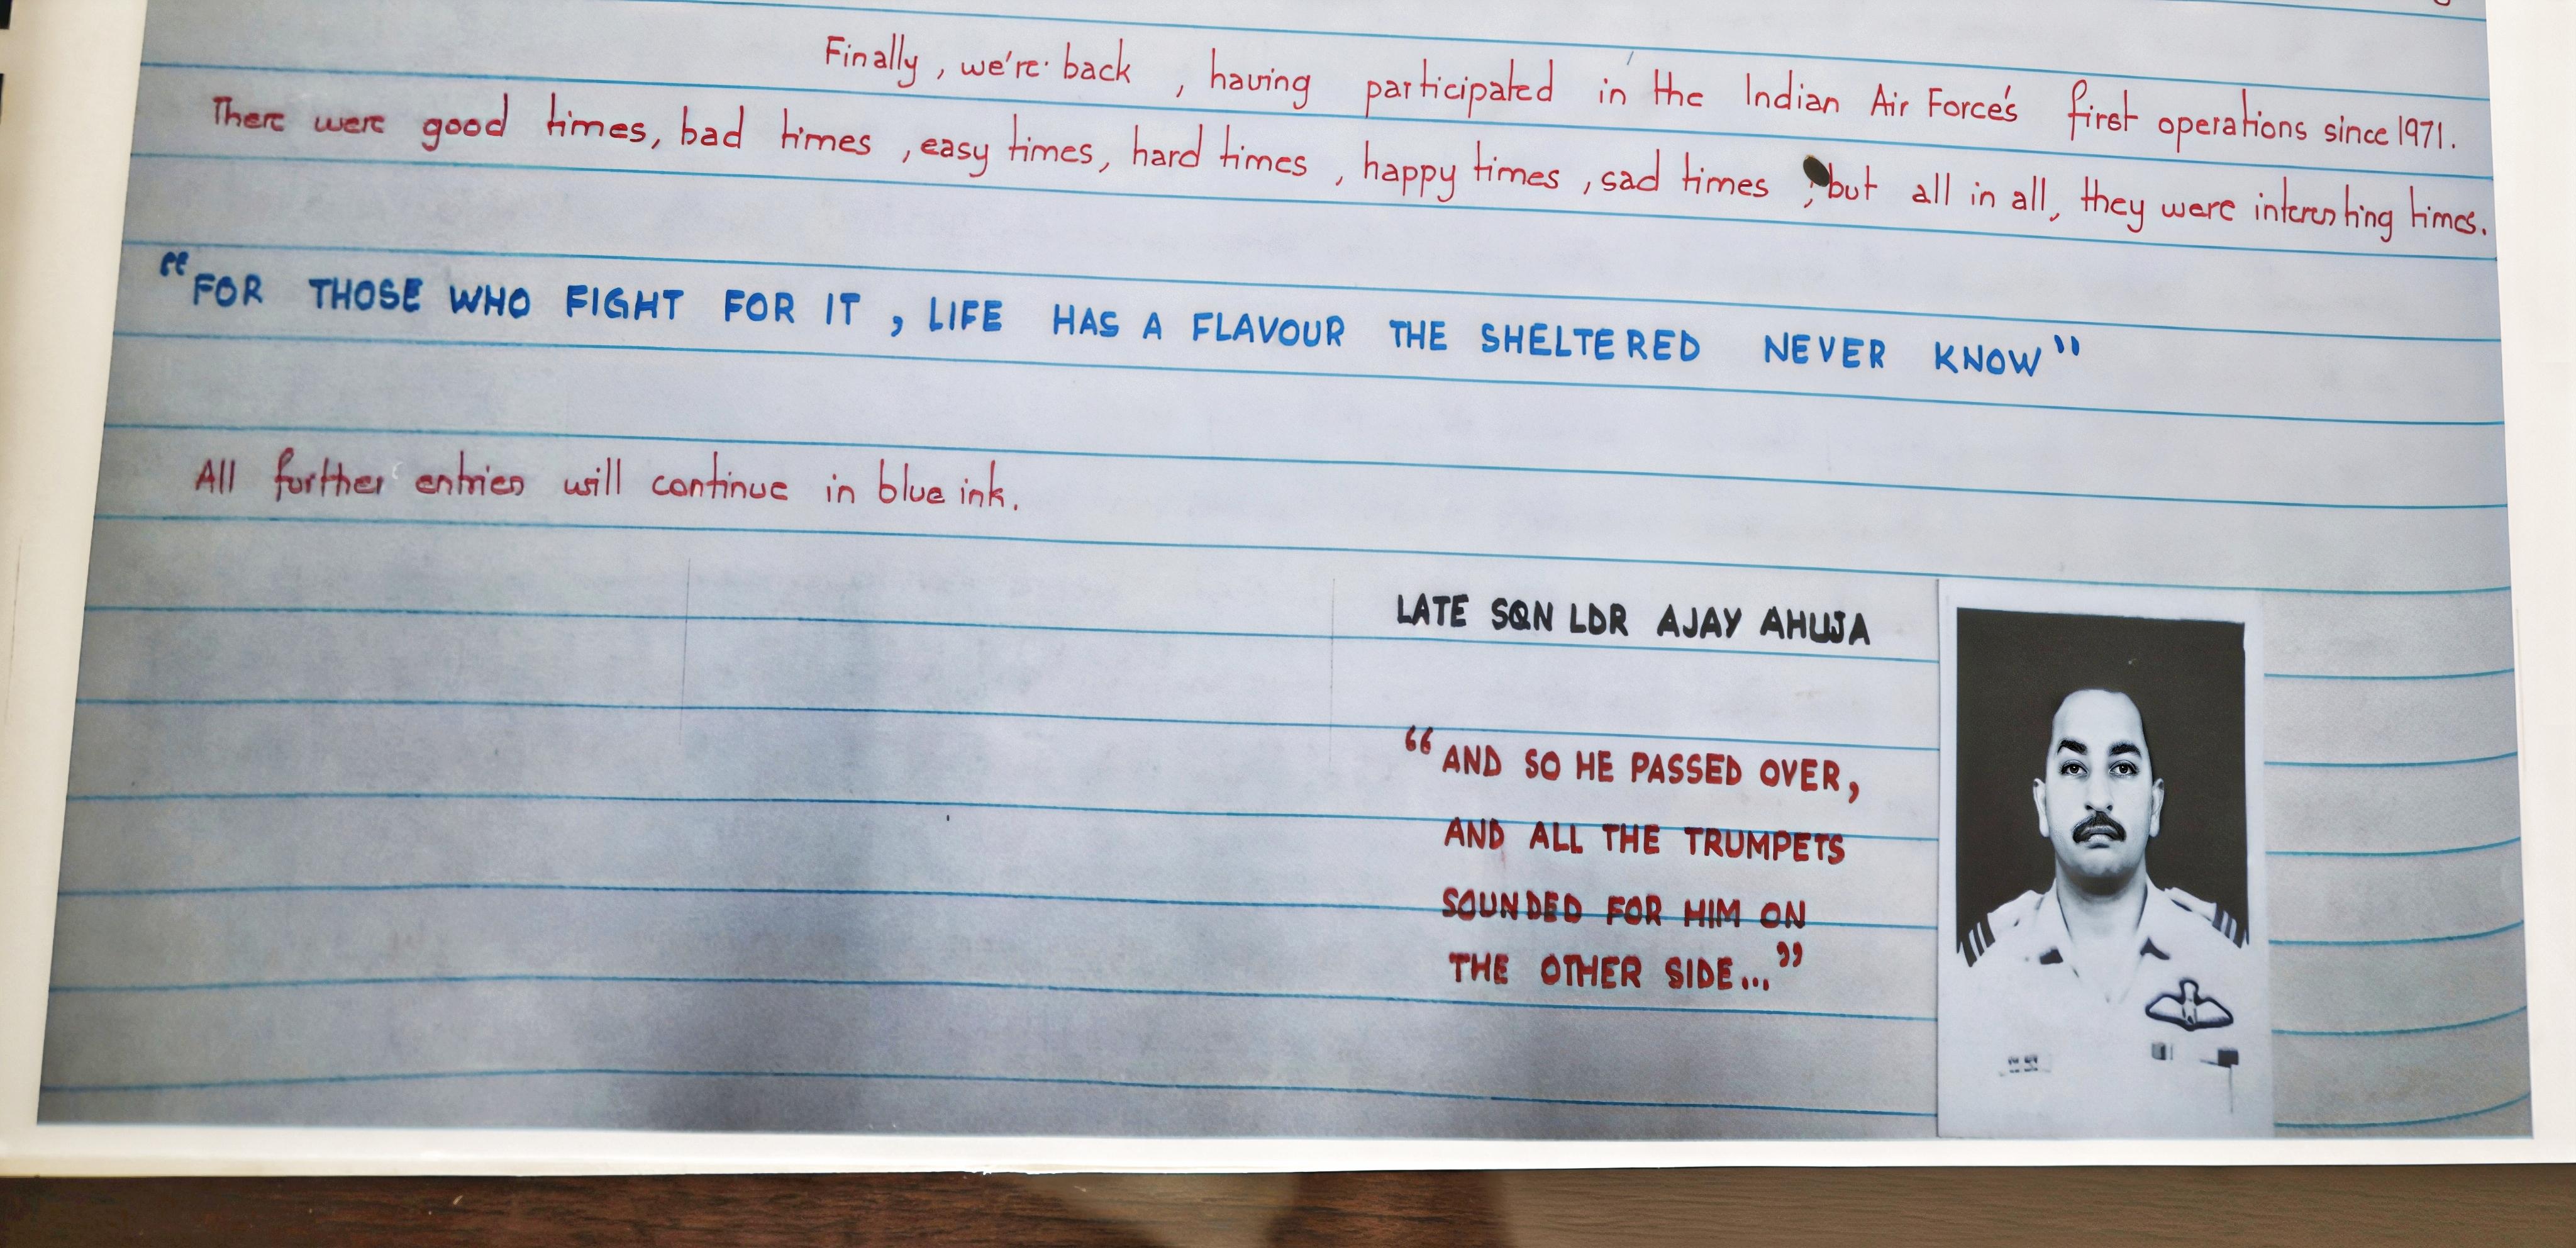 Finally, we're back, having participated in the Indian Air Force's first operations since 1971.
There were good times, bad times, easy times, hard times, happy times, sad times, but all in all, they were interesting times.
"FOR THOSE WHO FIGHT FOR IT, LIFE HAS A FLAVOUR THE SHELTERED NEVER KNOW"
All further entries will continue in blue ink.
LATE SQN LDR AJAY AHUJA
"AND SO HE PASSED OVER,
AND ALL THE TRUMPETS
SOUNDED FOR HIM ON
THE OTHER SIDE..."